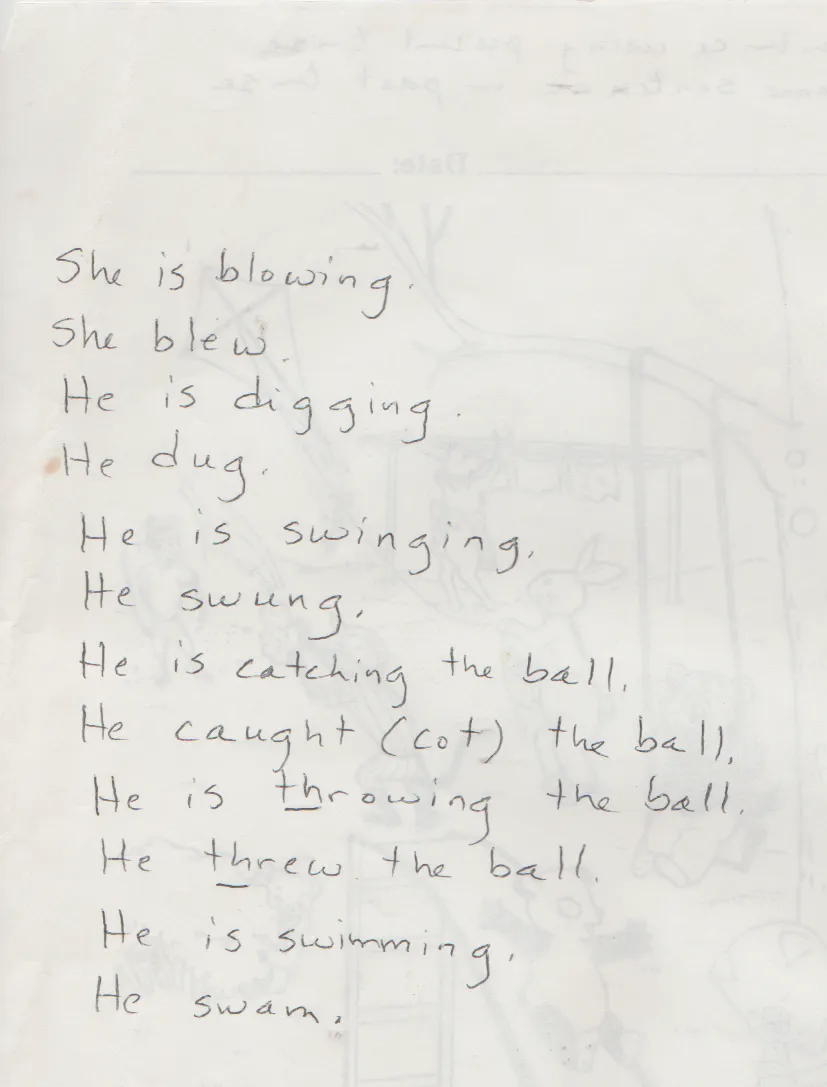 She is blowing.
She blew.
He is digging.
He dug.
He is swinging.
He swung.
He is catching the ball.
He caught (cot) the ball.
He is throwing the ball.
He threw the ball.
He is swimming.
He swam.
Date: